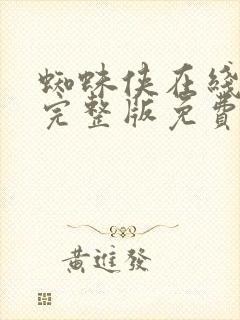 蜘蛛侠在綫
完整版免費
黃進發